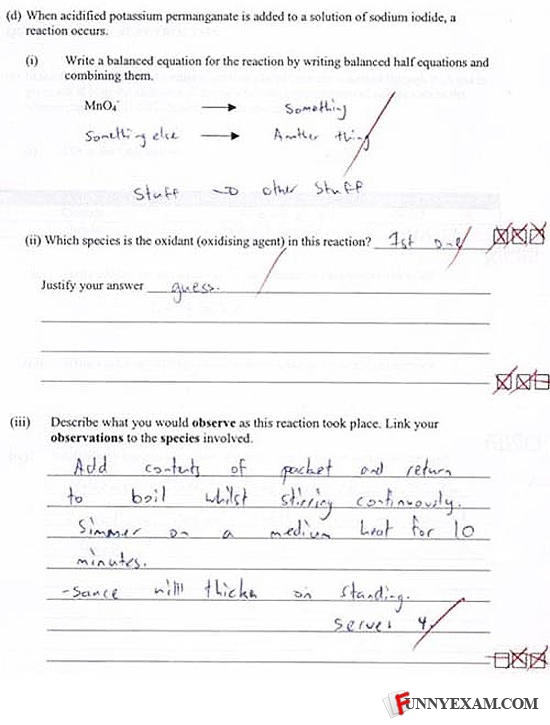 (d) When acidified potassium permanganate is added to a solution of sodium iodide, a
reaction occurs.
(i) Write a balanced equation for the reaction by writing balanced half equations and
combining them.
MnO₄⁻ → Something
Something else → Another thing
Stuff → other stuff
(ii) Which species is the oxidant (oxidising agent) in this reaction? 1st one
Justify your answer guess.
(iii) Describe what you would observe as this reaction took place. Link your
observations to the species involved.
Add contents of packet and return
to boil whilst stirring continuously.
Simmer on a medium heat for 10
minutes.
-Sauce will thicken on standing.
Serves 4.
FUNNYEXAM.COM